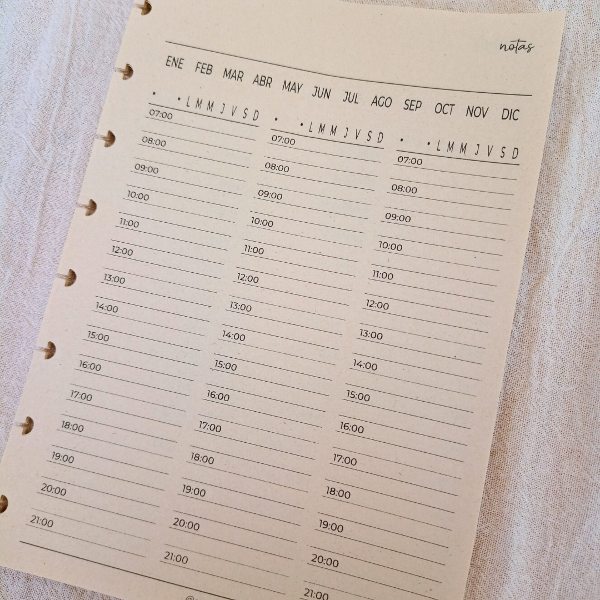 notas
ENE FEB MAR ABR MAY JUN JUL AGO SEP OCT NOV DIC
• • L M M J V S D • • L M M J V S D • • L M M J V S D
07:00 07:00 07:00
08:00 08:00 08:00
09:00 09:00 09:00
10:00 10:00 10:00
11:00 11:00 11:00
12:00 12:00 12:00
13:00 13:00 13:00
14:00 14:00 14:00
15:00 15:00 15:00
16:00 16:00 16:00
17:00 17:00 17:00
18:00 18:00 18:00
19:00 19:00 19:00
20:00 20:00 20:00
21:00 21:00 21:00